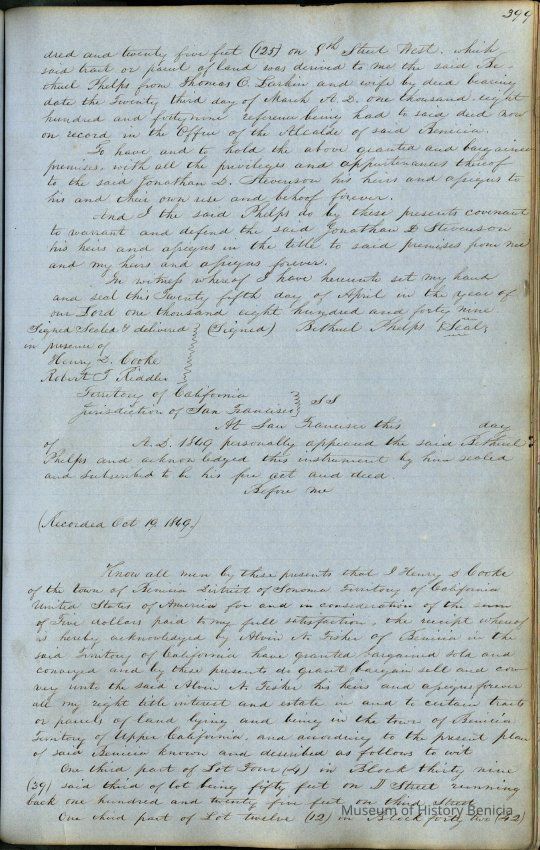 399
dred and twenty five feet (125) on 5th Street West. which
said tract or parcel of land was derived to me the said Be-
thuel Phelps from Thomas O. Larkin and wife by deed bearing
date the Twenty third day of March A.D. one thousand eight
hundred and forty nine reference being had to said deed now
on record in the Office of the Alcalde of said Benicia.
To have and to hold the above granted and bargained
premises, with all the privileges and appurtenances thereof
to the said Jonathan D. Stevenson his heirs and assigns to
his and their own use and behoof forever.
And I the said Phelps do by these presents covenant
to warrant and defend the said Jonathan D Stevenson
his heirs and assigns in the title to said premises from me
and my heirs and assigns forever.
In witness whereof I have hereunto set my hand
and seal this Twenty fifth day of April in the year of
our Lord one thousand eight hundred and forty nine
Signed Sealed & delivered (Signed) Bethuel Phelps Seal
in presence of
Henry D. Cooke
Robert T Riddler
Territory of California
Jurisdiction of San Francisco SS
At San Francisco this day
of A.D. 1849 personally appeared the said Bethuel
Phelps and acknowledged this instrument by him sealed
and subscribed to be his free act and deed.
Before me
(Recorded Oct 19, 1849,)
Know all men by these presents that I Henry D Cooke
of the town of Benicia District of Sonoma Territory of California
United States of America for and in consideration of the sum
of Five dollars paid to my full satisfaction, the receipt whereof
is hereby acknowledged by Alvin N. Fisher of Benicia in the
said Territory of California have granted bargained sold and
conveyed and by these presents do grant bargain sell and con-
vey unto the said Alvin N. Fisher his heirs and assigns forever
all my right title interest and estate in and to certain tracts
or parcels of land lying and being in the town of Benicia
Territory of Upper California, and according to the present plan
of said Benicia known and described as follows to wit
One third part of Lot Four (4) in Block thirty nine
(39) said third of lot being fifty feet on D Street running
back one hundred and twenty five feet on third Street
One third part of Lot twelve (12) in Block forty two (42)
Museum of History Benicia